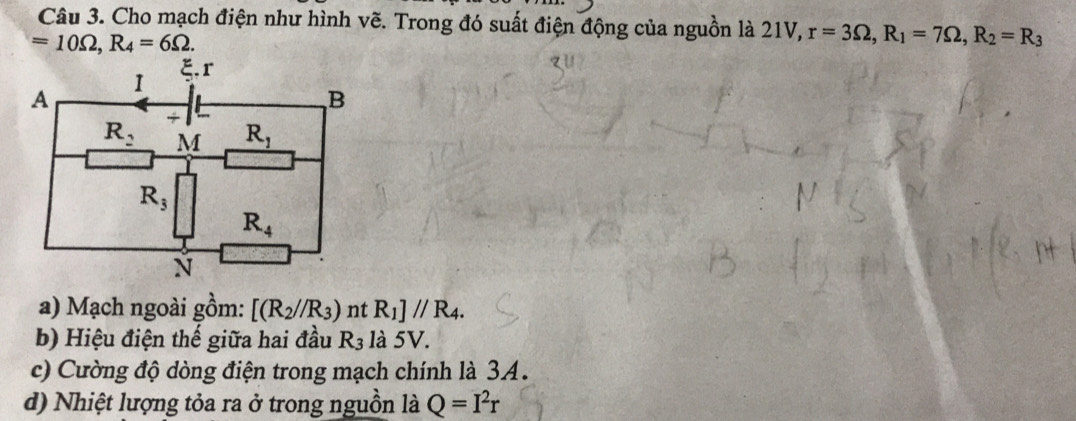 Câu 3. Cho mạch điện như hình vẽ. Trong đó suất điện động của nguồn là 21V, r = 3Ω, R₁ = 7Ω, R₂ = R₃
= 10Ω, R₄ = 6Ω.
ξ, r
I
A
+ −
B
R₂
M
R₁
R₃
R₄
N
a) Mạch ngoài gồm: [(R₂//R₃) nt R₁] // R₄.
b) Hiệu điện thế giữa hai đầu R₃ là 5V.
c) Cường độ dòng điện trong mạch chính là 3A.
d) Nhiệt lượng tỏa ra ở trong nguồn là Q = I²r